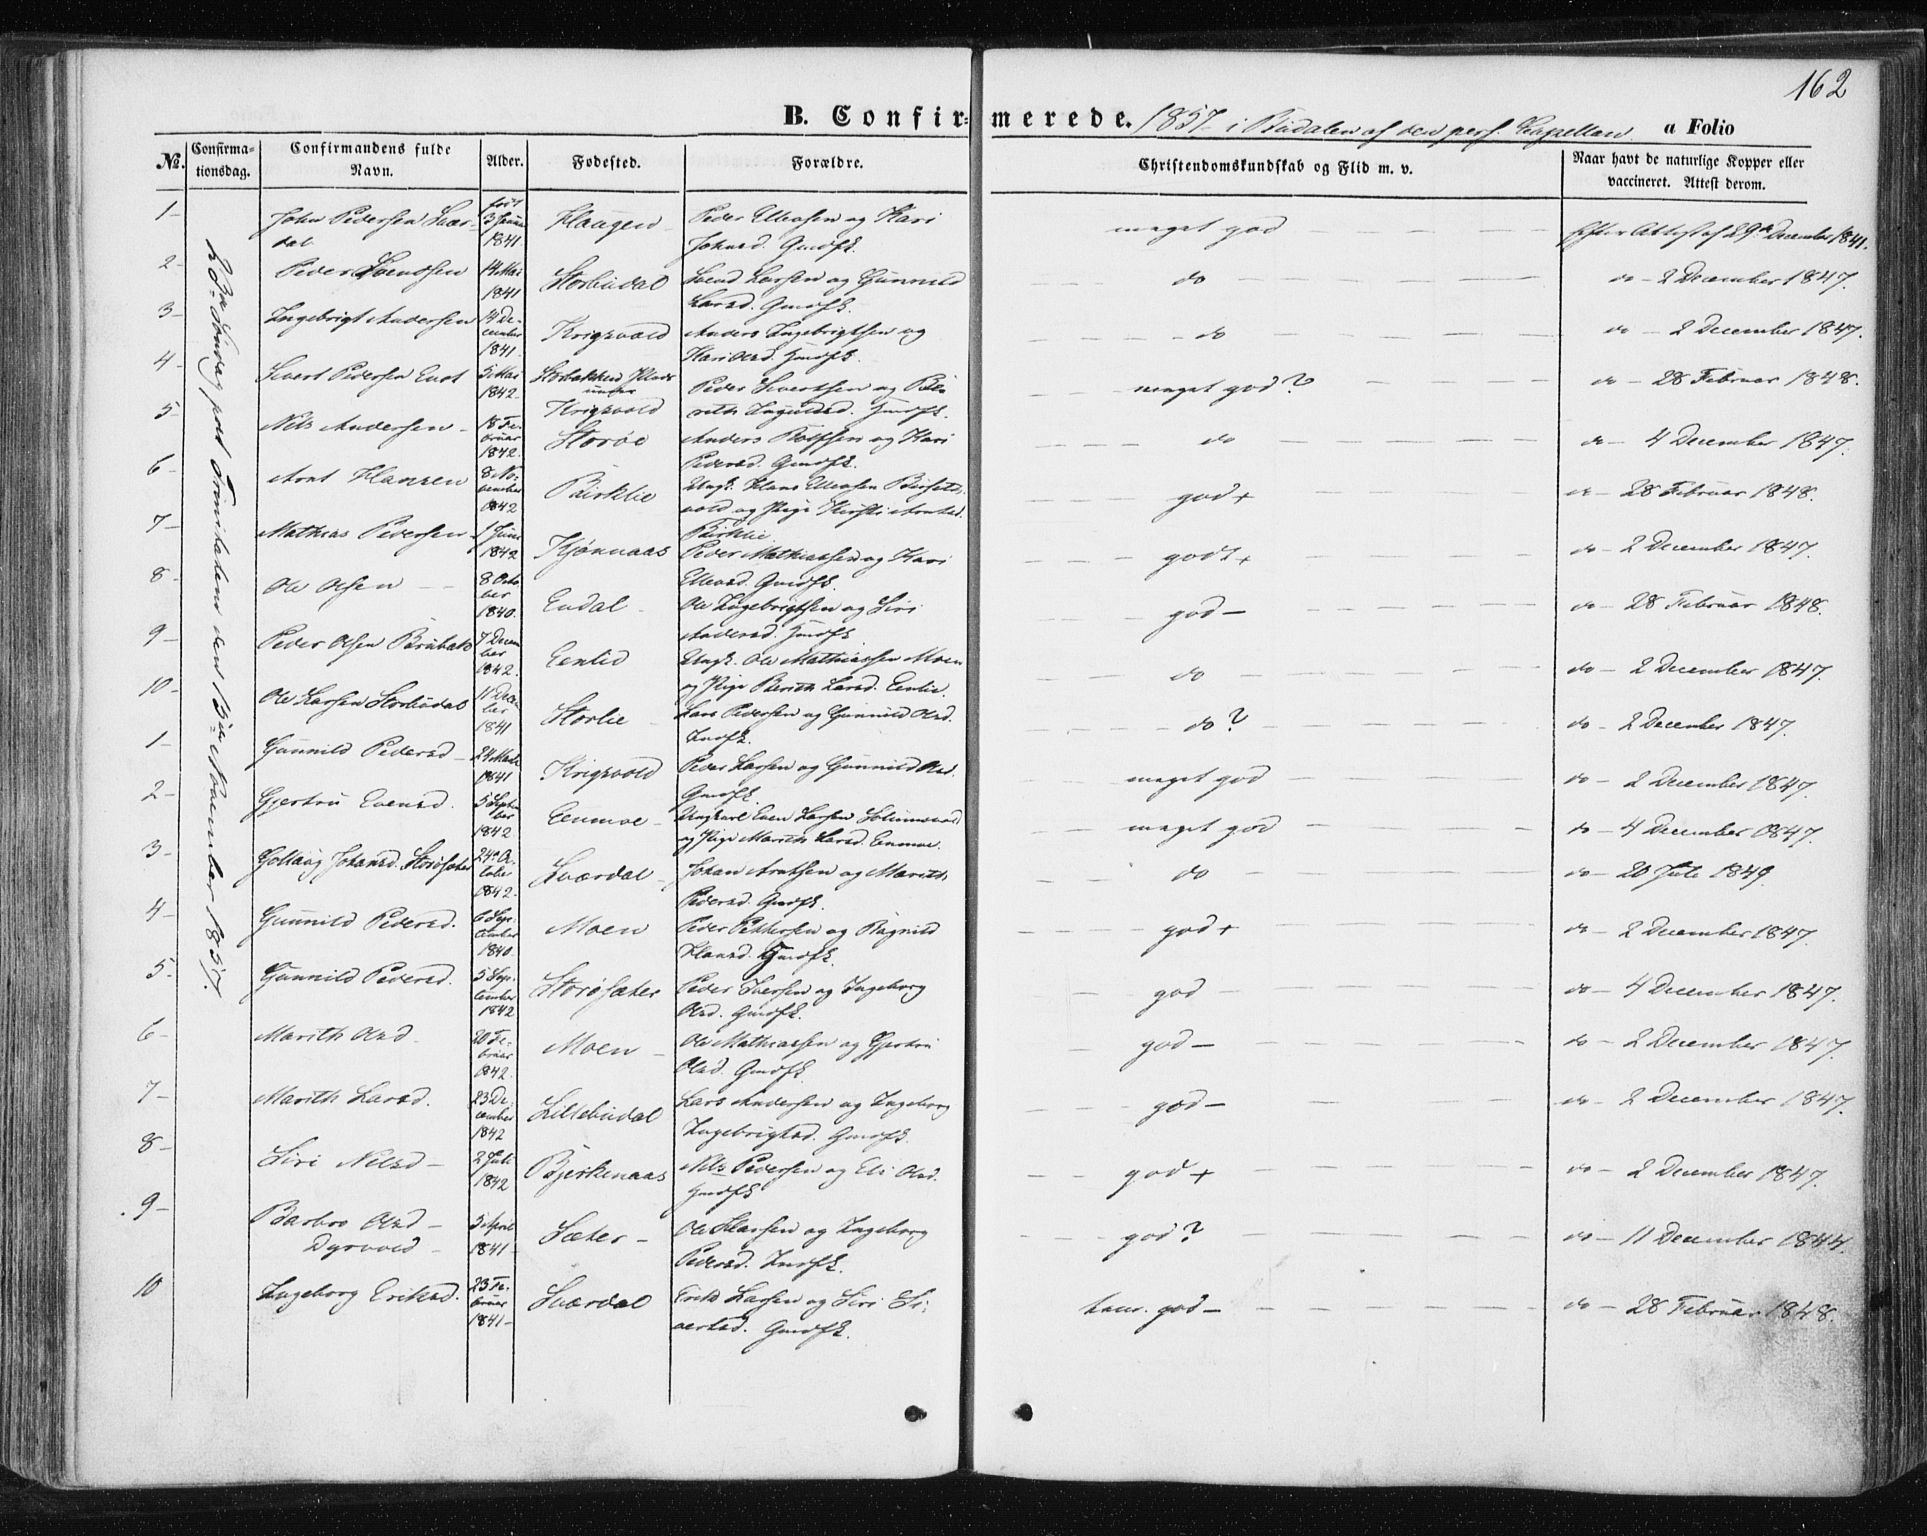 162
B. Confirmerede. 1857 i Budalen af den pers. Capellan a Folio
No. Confirmationsdag. Confirmandens fulde Navn. Alder. Fødested. Forældre. Christendomskundskab og Flid m. v. Naar havt de naturlige Kopper eller vaccineret. Attest derom.
Søndag post Trinitatis den 15de November 1857.
1- John Pedersen Svær-
dal født 3 Januar 1841 Haugen Peder Ellevsen og Kari
Johnsd. Gmdfk. meget god Efter Attest af 29de December 1841.
2- Peder Svendsen 14 Mai 1841 Storbudal Svend Larsen og Gunnild
Larsd. Gmdfk. do do - 2 December 1847.
3- Ingebrigt Andersen 14 December 1841. Krigsvold Anders Ingebrigtsen og
Kari Olsd. Gmdfk. do do - 2 December 1847.
4- Sivert Pedersen Enot 5 Mai 1842. Storbakken Plads under Krigsvold Peder Sivertsen og Be-
reth Ingulsd. Gmdfk. meget god? do - 28 Februar 1848.
5- Nils Andersen - 18 Februar 1842. Storøe Anders Rolfsen og Kari
Pedersd. Gmdfk. do do - 4 December 1847.
6- Arnt Hansen 8 November 1842 Birklie Ungk. Hans Ellevsen Birsets-
vold og Pige Kirsti Arntsd.
Birklie. god + do - 28 Februar 1848.
7- Mathias Pedersen 1 Juni 1842 Kjønnaas Peder Mathiassen og Kari
Ellevsd. Gmdfk. godt + do - 2 December 1847.
8- Ole Olsen 8 October 1840. Endal - Ole Ingebrigtsen og Siri
Andersd. Gmdfk. god - do - 28 Februar 1848.
9- Peder Olsen Brubak 7 December 1842. Eenlid Ungk. Ole Mathiassen Moen
og Pige Bereth Larsd. Eenlie. do do - 2 December 1847.
10- Ole Larsen Storbudal 11 December 1841 Storlie Lars Pedersen og Gunnild Olsd.
Indfk. do? do - 2 December 1847.
1- Gunnild Pedersd - 24 Marts 1841 Krigsvold Peder Larsen og Gunnild Olsd.
Gmdfk. meget god do - 2 December 1847.
2- Gjertru Evensd. 5 September 1842. Eenmoe - Ungkarl Even Larsen
og Pige Marith Larsd. Enmoe. meget god do - 4 December 1847.
3- Gollaug Johansd. Storøsæter 24de October 1842. Sværdal - Johan Arntsen og Marith
Pedersd. Gmdfk. do do - 20 Juli 1849.
4- Gunnild Pedersd. 6 September 1840. Moen Peder Pettersen og Ragnild
Hansd. Gmdfk. god + do - 2 December 1847.
5- Gunnild Pedersd. 5 September 1842 Storøsæter Peder Iversen og Ingeborg
Olsd. Gmdfk. god - do - 4 December 1847.
6- Marith Olsd 20 Februar 1842. Moen - Ole Mathiassen og Gjertru
Olsd. Gmdfk. god - do - 2 December 1847.
7- Marith Larsd. 23 December 1842 Lillebudal Lars Andersen og Ingeborg
Ingebrigtsd. Gmdfk. god - do - 2 December 1847.
8- Siri Nilsd - 2 Juli 1842 Bjerkenaas Nils Pedersen og Eli Olsd.
Gmdfk god + do - 2 December 1847.
9- Barbro Olsd -
Dyrvold - 5 April 1841 - Sæter - Ole Hansen og Ingeborg
Pedersd. Indfk. god? do - 11 December 1844.
10 Ingeborg Eriksd. 23 Februar 1841 - Sværdal Erik Larsen og Siri Si-
vertsd. Gmdfk. temr. god - do - 28 Februar 1848.